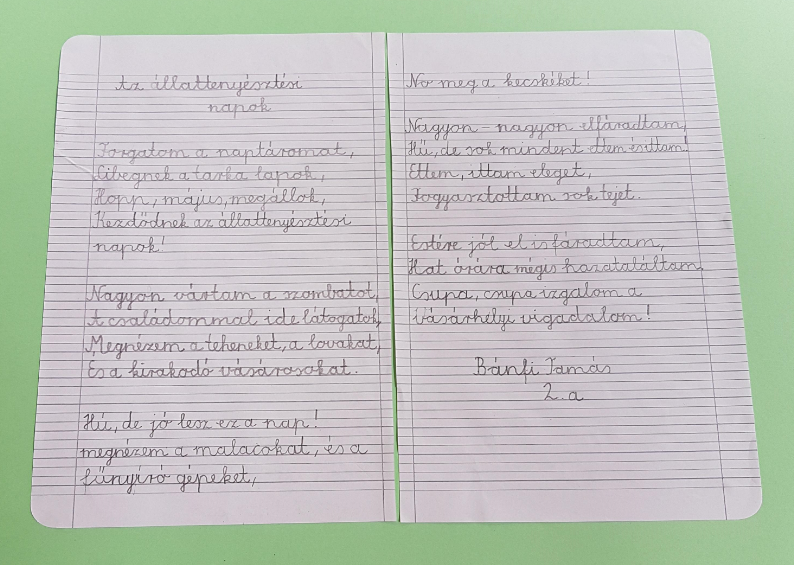 Az állattenyésztési
napok
Forgatom a naptáromat,
Libegnek a tarka lapok,
Hopp, május, megállok,
Kezdődnek az állattenyésztési
napok!
Nagyon vártam a szombatot,
A családommal ide látogatok,
Megnézem a teheneket, a lovakat,
És a kirakodó vásárosokat.
Hű, de jó lesz ez a nap!
megnézem a malacokat, és a
fűnyíró gépeket,
No meg a kecskéket!
Nagyon-nagyon elfáradtam,
Hű, de sok mindent ettem és ittam!
Ettem, ittam eleget,
Fogyasztottam sok tejet.
Estére jól el is fáradtam,
Hat órára mégis hazataláltam.
Csupa, csupa izgalom a
vásárhelyi vigadalom!
Bánfi Tamás
2.a